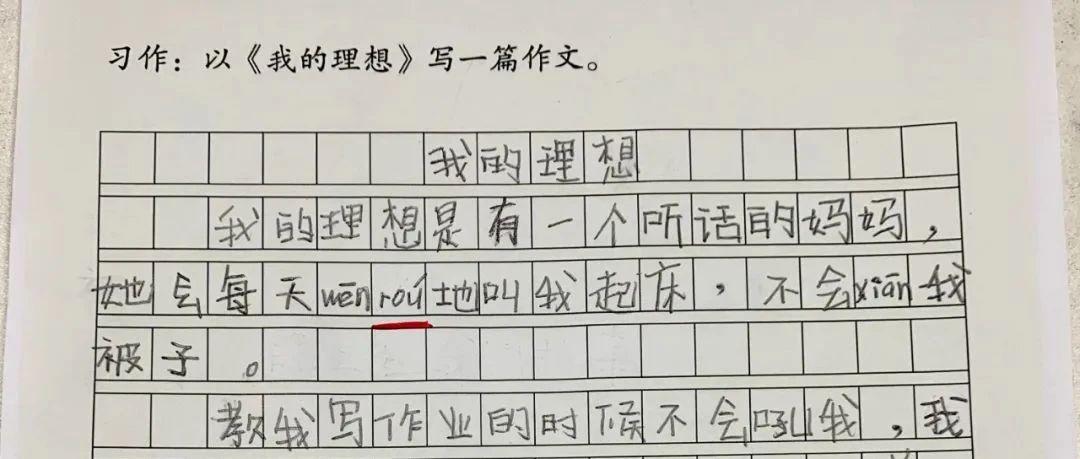 习作：以《我的理想》写一篇作文。
我的理想
我的理想是有一个听话的妈妈，
她会每天wēnróu地叫我起床，不会xiān我
被子。
教我写作业的时候不会吼我，我